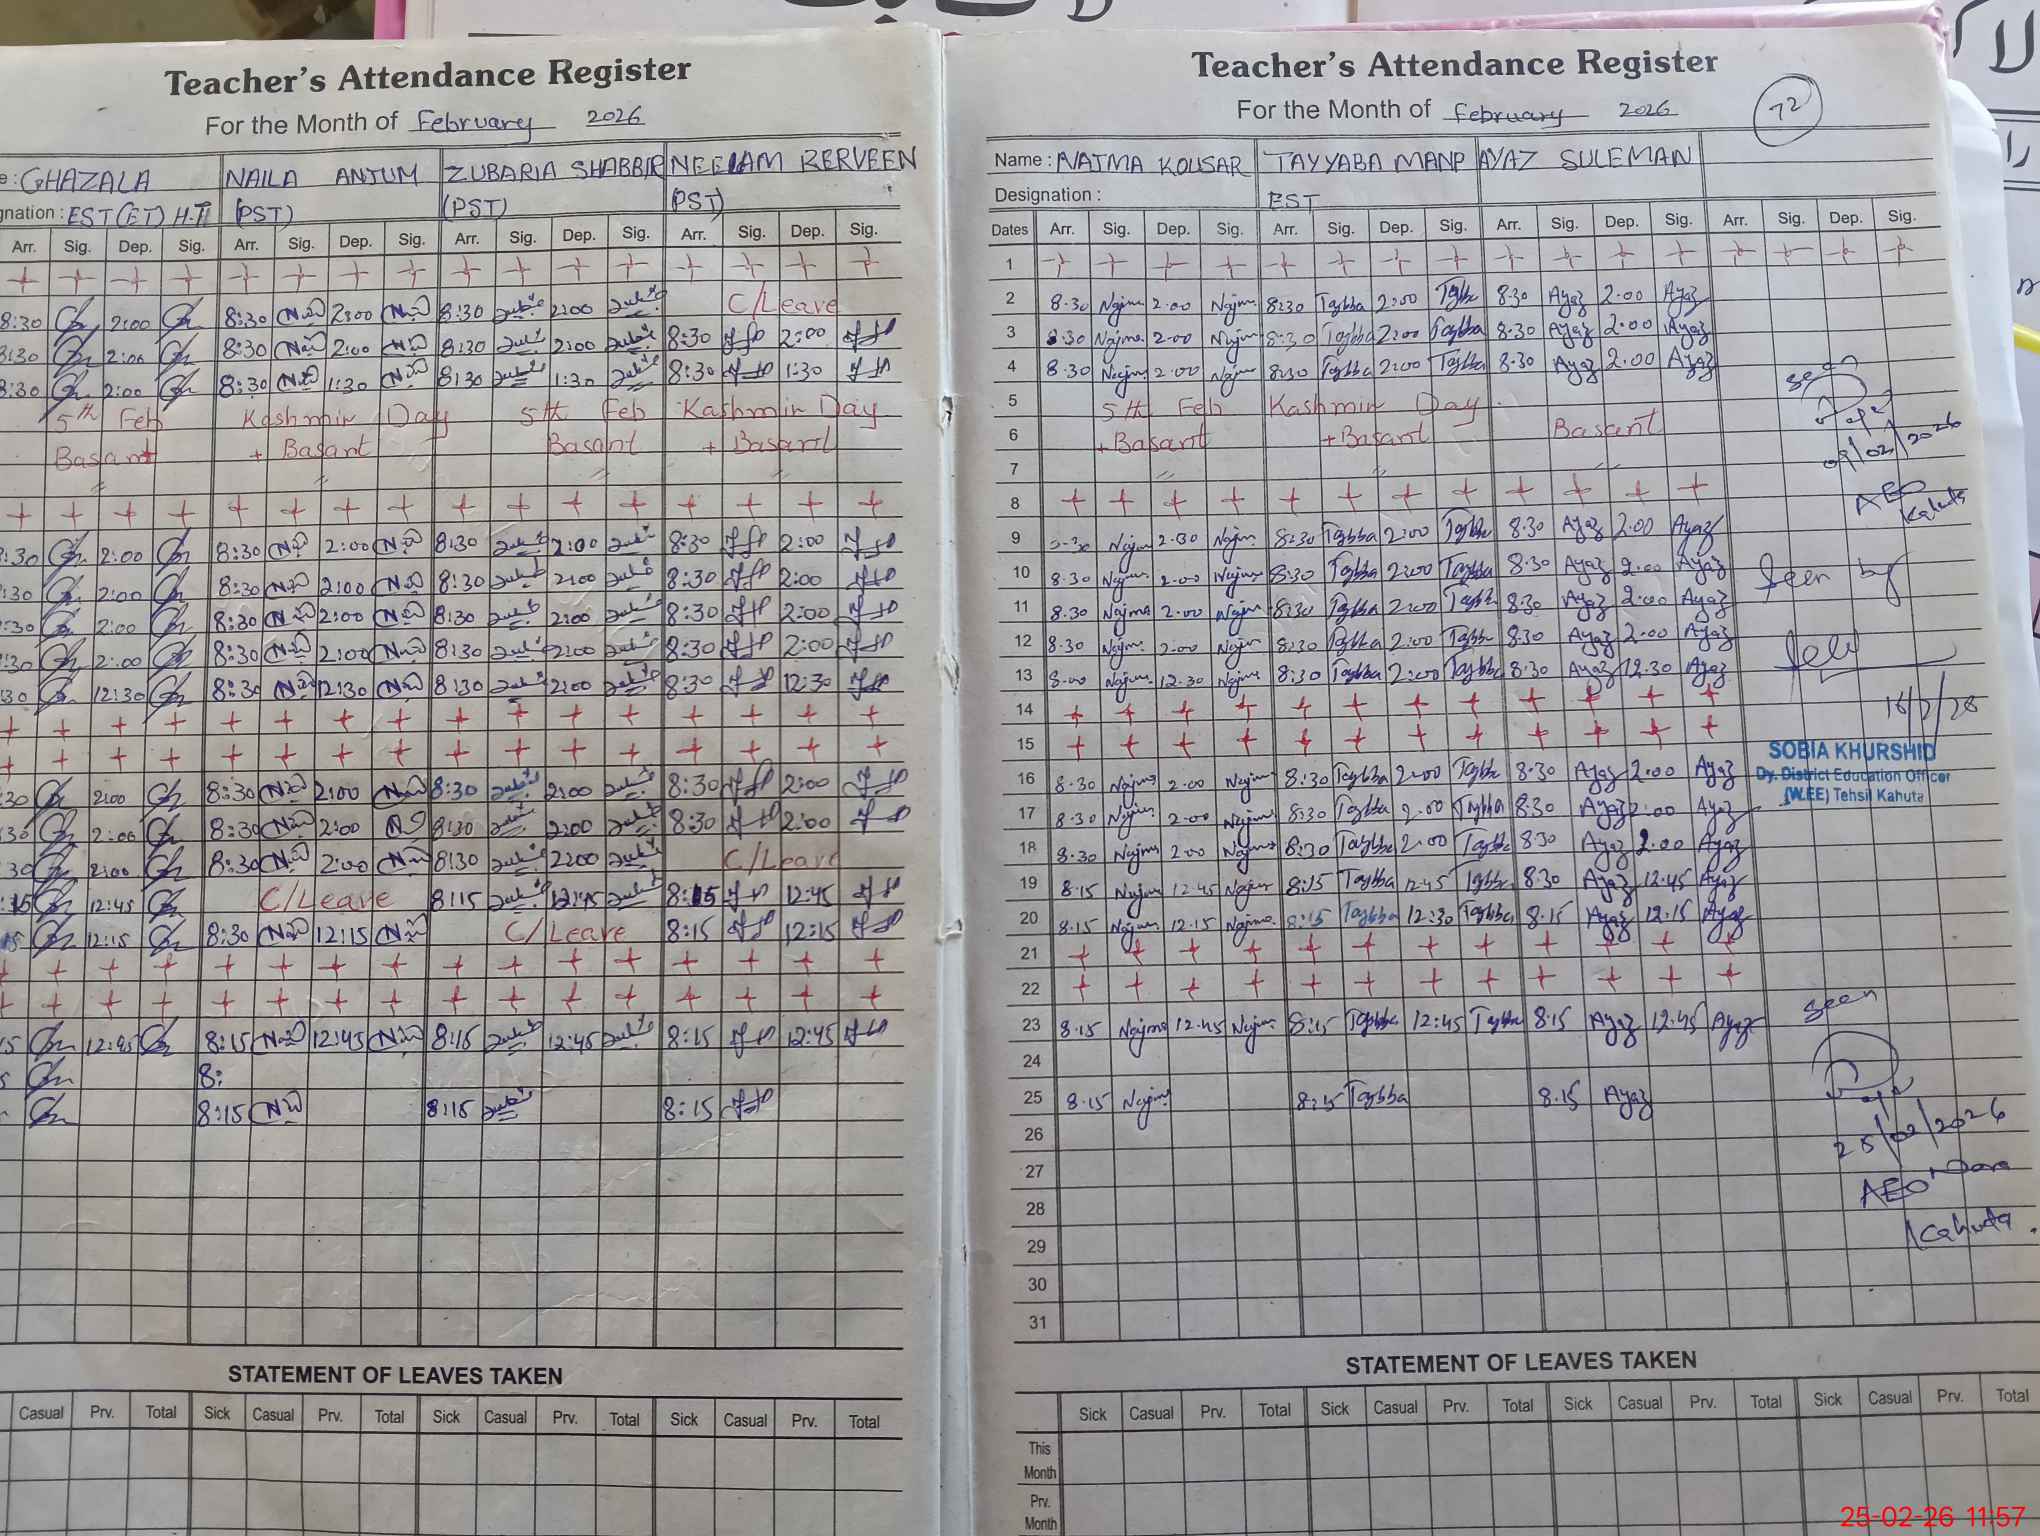 Teacher's Attendance Register
For the Month of February 2026
GHAZALA NAILA ANJUM ZUBARIA SHABBIR NEELAM BERVEEN
gnation : EST (ET) H.T (PST) (PST) (PST)
Arr. Sig. Dep. Sig. Arr. Sig. Dep. Sig. Arr. Sig. Dep. Sig. Arr. Sig. Dep. Sig.
8:30 2:00 8:30 2:00 8:30 2:00 C/Leave
8:30 2:00 8:30 2:00 8:30 2:00 8:30 2:00
8:30 2:00 8:30 1:30 8:30 1:30 8:30 1:30
5th Feb Kashmir Day 5th Feb Kashmir Day
Basant + Basant Basant + Basant
:30 2:00 8:30 2:00 8:30 2:00 8:30 2:00
:30 2:00 8:30 2:00 8:30 2:00 8:30 2:00
:30 2:00 8:30 2:00 8:30 2:00 8:30 2:00
:30 2:00 8:30 2:00 8:30 2:00 8:30 2:00
30 12:30 8:30 12:30 8:30 2:00 8:30 12:30
30 2:00 8:30 2:00 8:30 2:00 8:30 2:00
30 2:00 8:30 2:00 8:30 2:00 8:30 2:00
30 2:00 8:30 2:00 8:30 2:00 C/Leave
:15 12:45 C/Leave 8:15 12:45 8:15 12:45
15 12:15 8:30 12:15 C/Leave 8:15 12:15
5 12:45 8:15 12:45 8:15 12:45 8:15 12:45
8:
8:15 8:15 8:15
STATEMENT OF LEAVES TAKEN
Casual Prv. Total Sick Casual Prv. Total Sick Casual Prv. Total Sick Casual Prv. Total
Teacher's Attendance Register
For the Month of February 2026
72
Name : NAJMA KOUSAR TAYYABA MANP AYAZ SULEMAN
Designation : EST
Dates Arr. Sig. Dep. Sig. Arr. Sig. Dep. Sig. Arr. Sig. Dep. Sig. Arr. Sig. Dep. Sig.
1
2 8.30 Najma 2.00 Najma 8:30 Taybba 2:00 Taybba 8.30 Ayaz 2.00 Ayaz
3 8.30 Najma 2.00 Najma 8:30 Taybba 2:00 Taybba 8.30 Ayaz 2.00 Ayaz
4 8.30 Najma 2.00 Najma 8:30 Taybba 2:00 Taybba 8.30 Ayaz 2.00 Ayaz
5 5th Feb Kashmir Day
6 + Basant + Basant Basant
7
8
seen
09/02/2026
AEO
Kahuta
9 Najma 2.00 Najma 8:30 Taybba 2:00 Taybba 8.30 Ayaz 2.00 Ayaz
10 8.30 Najma 2.00 Najma 8:30 Taybba 2:00 Taybba 8.30 Ayaz 2.00 Ayaz
11 8.30 Najma 2.00 Najma 8:30 Taybba 2:00 Taybba 8.30 Ayaz 2.00 Ayaz
12 8.30 Najma 2.00 Najma 8:30 Taybba 2:00 Taybba 8.30 Ayaz 2.00 Ayaz
13 8.00 Najma 12.30 Najma 8:30 Taybba 2:00 Taybba 8.30 Ayaz 12.30 Ayaz
14
15
Seen by
SOBIA KHURSHID
Dy. District Education Officer
(W.EE) Tehsil Kahuta
16 8.30 Najma 2.00 Najma 8:30 Taybba 2:00 Taybba 8.30 Ayaz 2.00 Ayaz
17 8.30 Najma 2.00 Najma 8:30 Taybba 2.00 Taybba 8.30 Ayaz 2:00 Ayaz
18 8.30 Najma 2.00 Najma 8:30 Taybba 2.00 Taybba 8.30 Ayaz 2.00 Ayaz
19 8.15 Najma 12.45 Najma 8:15 Taybba 12.45 Taybba 8.30 Ayaz 12.45 Ayaz
20 8.15 Najma 12.15 Najma 8:15 Taybba 12:30 Taybba 8.15 Ayaz 12.15 Ayaz
21
22
23 8.15 Najma 12.45 Najma 8:15 Taybba 12:45 Taybba 8.15 Ayaz 12.45 Ayaz
24
25 8.15 Najma 8:15 Taybba 8.15 Ayaz
26
27
28
29
30
31
seen
25/02/2026
AEO
Kahuta
STATEMENT OF LEAVES TAKEN
Sick Casual Prv. Total Sick Casual Prv. Total Sick Casual Prv. Total Sick Casual Prv. Total
This
Month
Prv.
Month
25-02-26 11:57